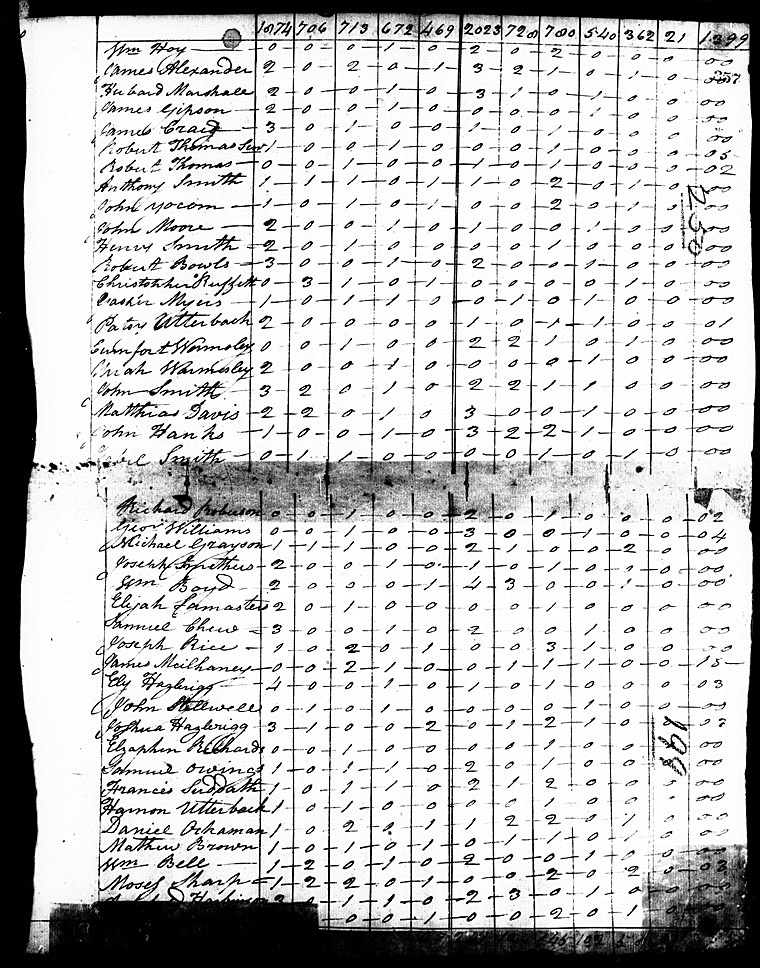 1874 706 713 672 469 2023 728 780 540 362 21 1299
Wm Hoy 0 0 0 1 0 2 0 2 0 0 0 00
James Alexander 2 0 2 0 1 3 2 1 0 1 0 00
257
Hubard Marshall 2 0 0 1 0 3 1 0 1 0 0 00
James Gipson 2 0 0 1 0
James Craig 3 0 1 0 0
Robert Thomas Senr 1 0 0 1 0
Robert Thomas 0 0 1 0 0 1 0 1 0 0 0 02
Anthony Smith 1 1 1 0 1 1 0 2 0 1 0 00
John Yocom 1 0 1 0 1
John Moore 2 0 0 1 0 1 0 0 1 0 0 00
250
Henry Smith 2 0 1 0 0
Robert Bowls 3 0 0 1 0 2 0 0 1 0 0 00
Christopher Ruffett 0 3 1 0 1 0 0 0 0 1 0 00
Myers 1 0 1 1 0 0 1 0 1 0 0 00
Patsy Utterback 2 0 0 0 0 1 0 1 1 0 0 01
Wormsley 0 0 1 0 0 2 2 1 0 1 0 00
Uriah Wormsley 2 0 0 1 0 0 0 0 1 0 0 00
John Smith 3 2 0 1 0 2 2 1 1 0 0 00
Matthias Davis 2 2 0 1 0 3 0 0 1 0 0 00
John Hanks 1 0 0 1 0 3 2 2 1 0 0 00
Smith 0 1 1 0 0 0 0 1 0 1 0 00
Richard Roberson 0 0 1 0 0 2 0 1 0 0 0 02
Geor Williams 0 0 1 0 0 3 0 0 1 0 0 04
Michael Grayson 1 1 1 0 0 2 1 0 0 2 0 00
Joseph 2 0 0 1 0 1 0 1 1 0 0 00
Wm Boyd 2 0 0 0 1 4 3 0 0 1 0 00
Elijah Lamasters 2 0 1 0 0 0 0 1 0 0 0 00
Samuel Chew 3 0 0 1 0 2 0 0 1 0 0 00
Joseph Rice 1 0 2 0 1 0 0 3 1 0 0 00
James Mcilhaney 0 0 2 1 0 0 1 1 1 0 0 15
Ely Hazlerigg 4 0 0 1 0 1 0 1 0 0 0 03
John Stillwell 0 1 0 1 0
Joshua Hazlerigg 3 1 0 0 2 0 1 2 1 0 0 03
198
Elzaphan Richards 0 0 1 0 0 0 0 1 0 0 0 00
Samuel Owings 1 0 1 1 0 2 0 1
Frances Suddath 1 0 1 1 0 2 1 2 0 0 0 00
Harmon Utterback 1 0 1 0 0 0 0 1 0 0 0 00
Daniel Ockaman 1 0 2 0 1 1 2 2 0 1 0 00
Mathew Brown 1 0 1 0 0 1 0 1 0 0 0 00
Wm Bell 1 2 0 1 0 2 0 0 1 0 0 00
Moses Sharp 1 2 2 0 1 0 0 2 0 2 0 03
2 0 0 1 0 2 3 0 1 0 0 00
0 0 1 0 0 2 0 1 0 00